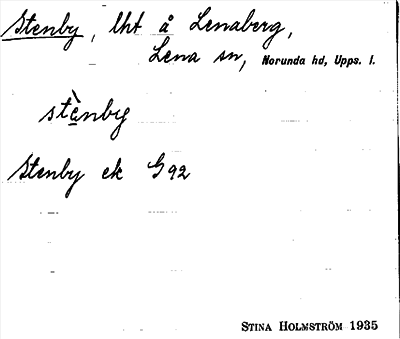 Stenby, lht å Lenaberg,
Lena sn, Norunda hd, Upps. l.
stè̱nby
Stenby ek G 92
STINA HOLMSTRÖM 1935